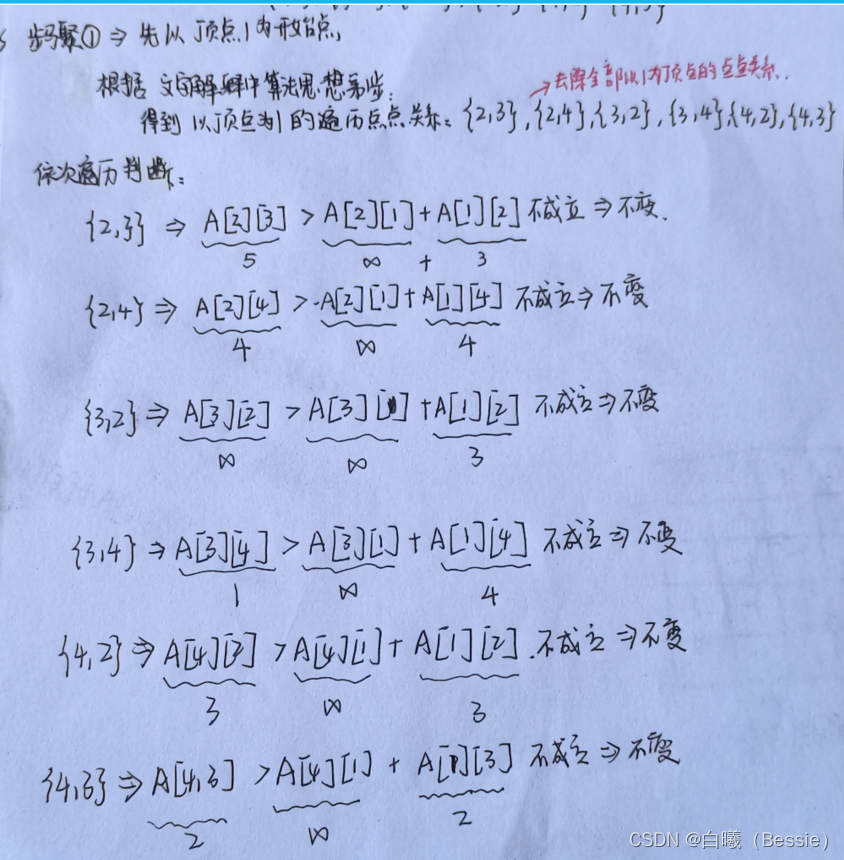 步骤① ⇒ 先以顶点1为开始点,
根据文字解释中算法思想第步:
→去除全部以1为顶点的点点关系.
得到以顶点为1的遍历点点关系: {2,3},{2,4},{3,2},{3,4}{4,2},{4,3}
依次遍历判断:
{2,3} ⇒ A[2][3] > A[2][1]+A[1][2] 不成立 ⇒ 不变.
5 ∞ + 3
{2,4} ⇒ A[2][4] > A[2][1]+A[1][4] 不成立 ⇒ 不变
4 ∞ 4
{3,2} ⇒ A[3][2] > A[3][1]+A[1][2] 不成立 ⇒ 不变
∞ ∞ 3
{3,4} ⇒ A[3][4] > A[3][1] + A[1][4] 不成立 ⇒ 不变
1 ∞ 4
{4,2} ⇒ A[4][2] > A[4][1] + A[1][2]. 不成立 ⇒ 不变
3 ∞ 3
{4,3} ⇒ A[4,3] > A[4][1] + A[1][3] 不成立 ⇒ 不变
2 ∞ 2
CSDN @白曦（Bessie）